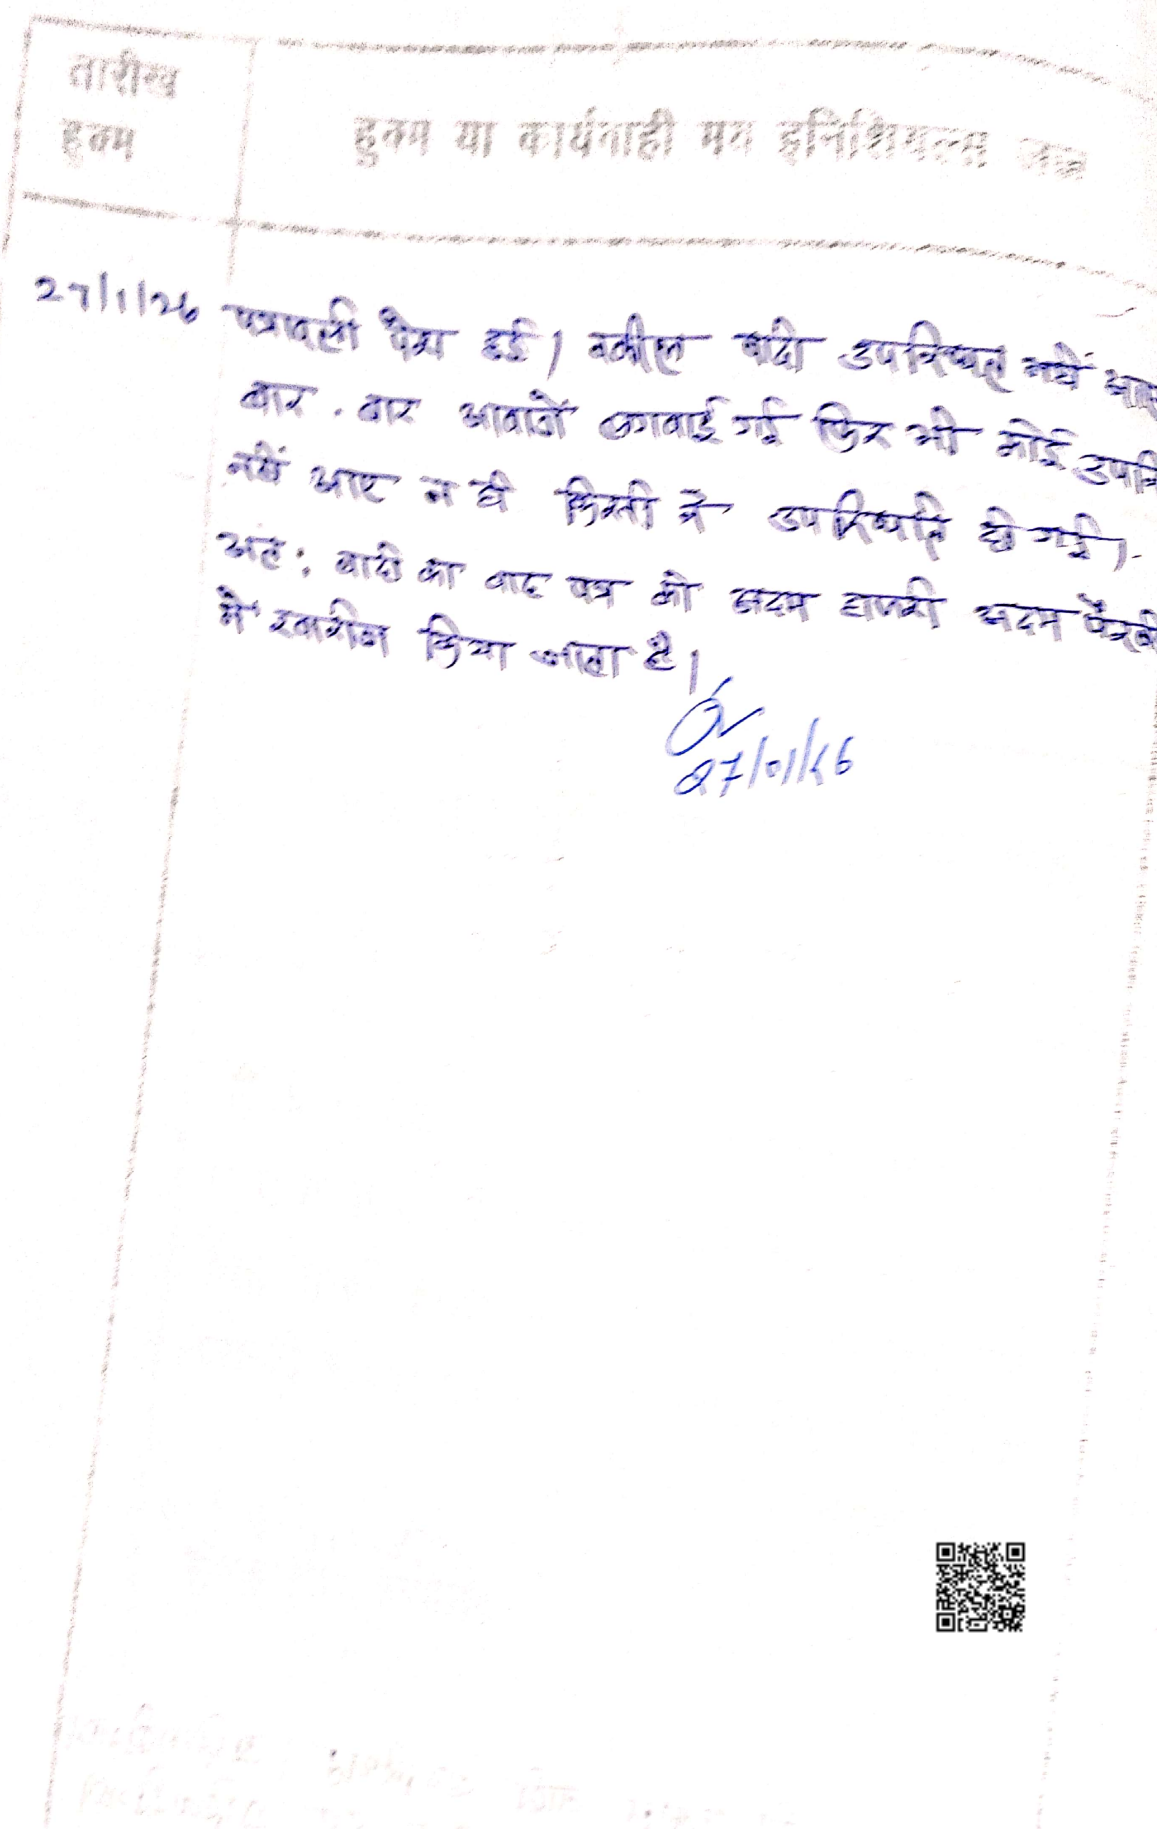 तारीख
हुक्म
हुक्म या कार्यवाही मय इनिशियल्स जज
27/1/26 पत्रावली पेश हुई। वकील वादी उपस्थित नहीं आए
बार-बार आवाजें लगवाई गई फिर भी कोई उपस्थि
नहीं आए न ही किसी ने उपस्थिति दी गई।
अतः वादी का वाद पत्र को अदम हाजरी अदम पैरवी
में खारीज किया जाता है।
27/01/26